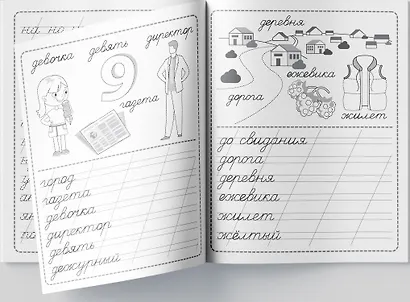 на но
девочка
девять
директор
9
газета
город
газета
девочка
директор
девять
дежурный
деревня
ежевика
дорога
жилет
до свидания
дорога
деревня
ежевика
жилет
жёлтый